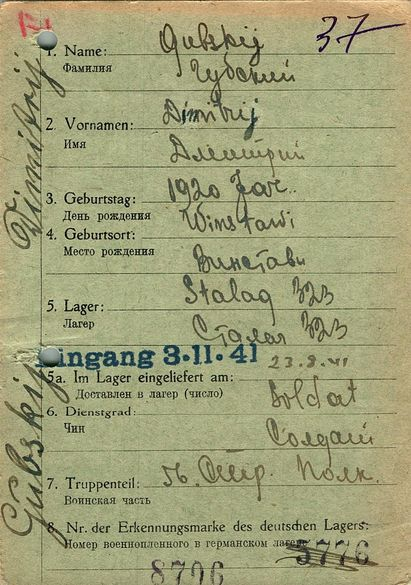 37
1. Name: Gubskij
Фамилия Губский
2. Vornamen: Dimitrij
Имя Дмитрий
3. Geburtstag: 1920 Jar.
День рождения
4. Geburtsort: Winstawi
Место рождения Винстави
5. Lager: Stalag 323
Лагер Сталаг 323
Eingang 3.11.41 23.8.41
5a. Im Lager eingeliefert am:
Доставлен в лагер (число)
6. Dienstgrad: Soldat
Чин Солдат
7. Truppenteil: 56. Стр. Полк.
Воинская часть
8. Nr. der Erkennungsmarke des deutschen Lagers:
Номер военнопленного в германском лагере: 5776
8706
Gubskij Dimitrij